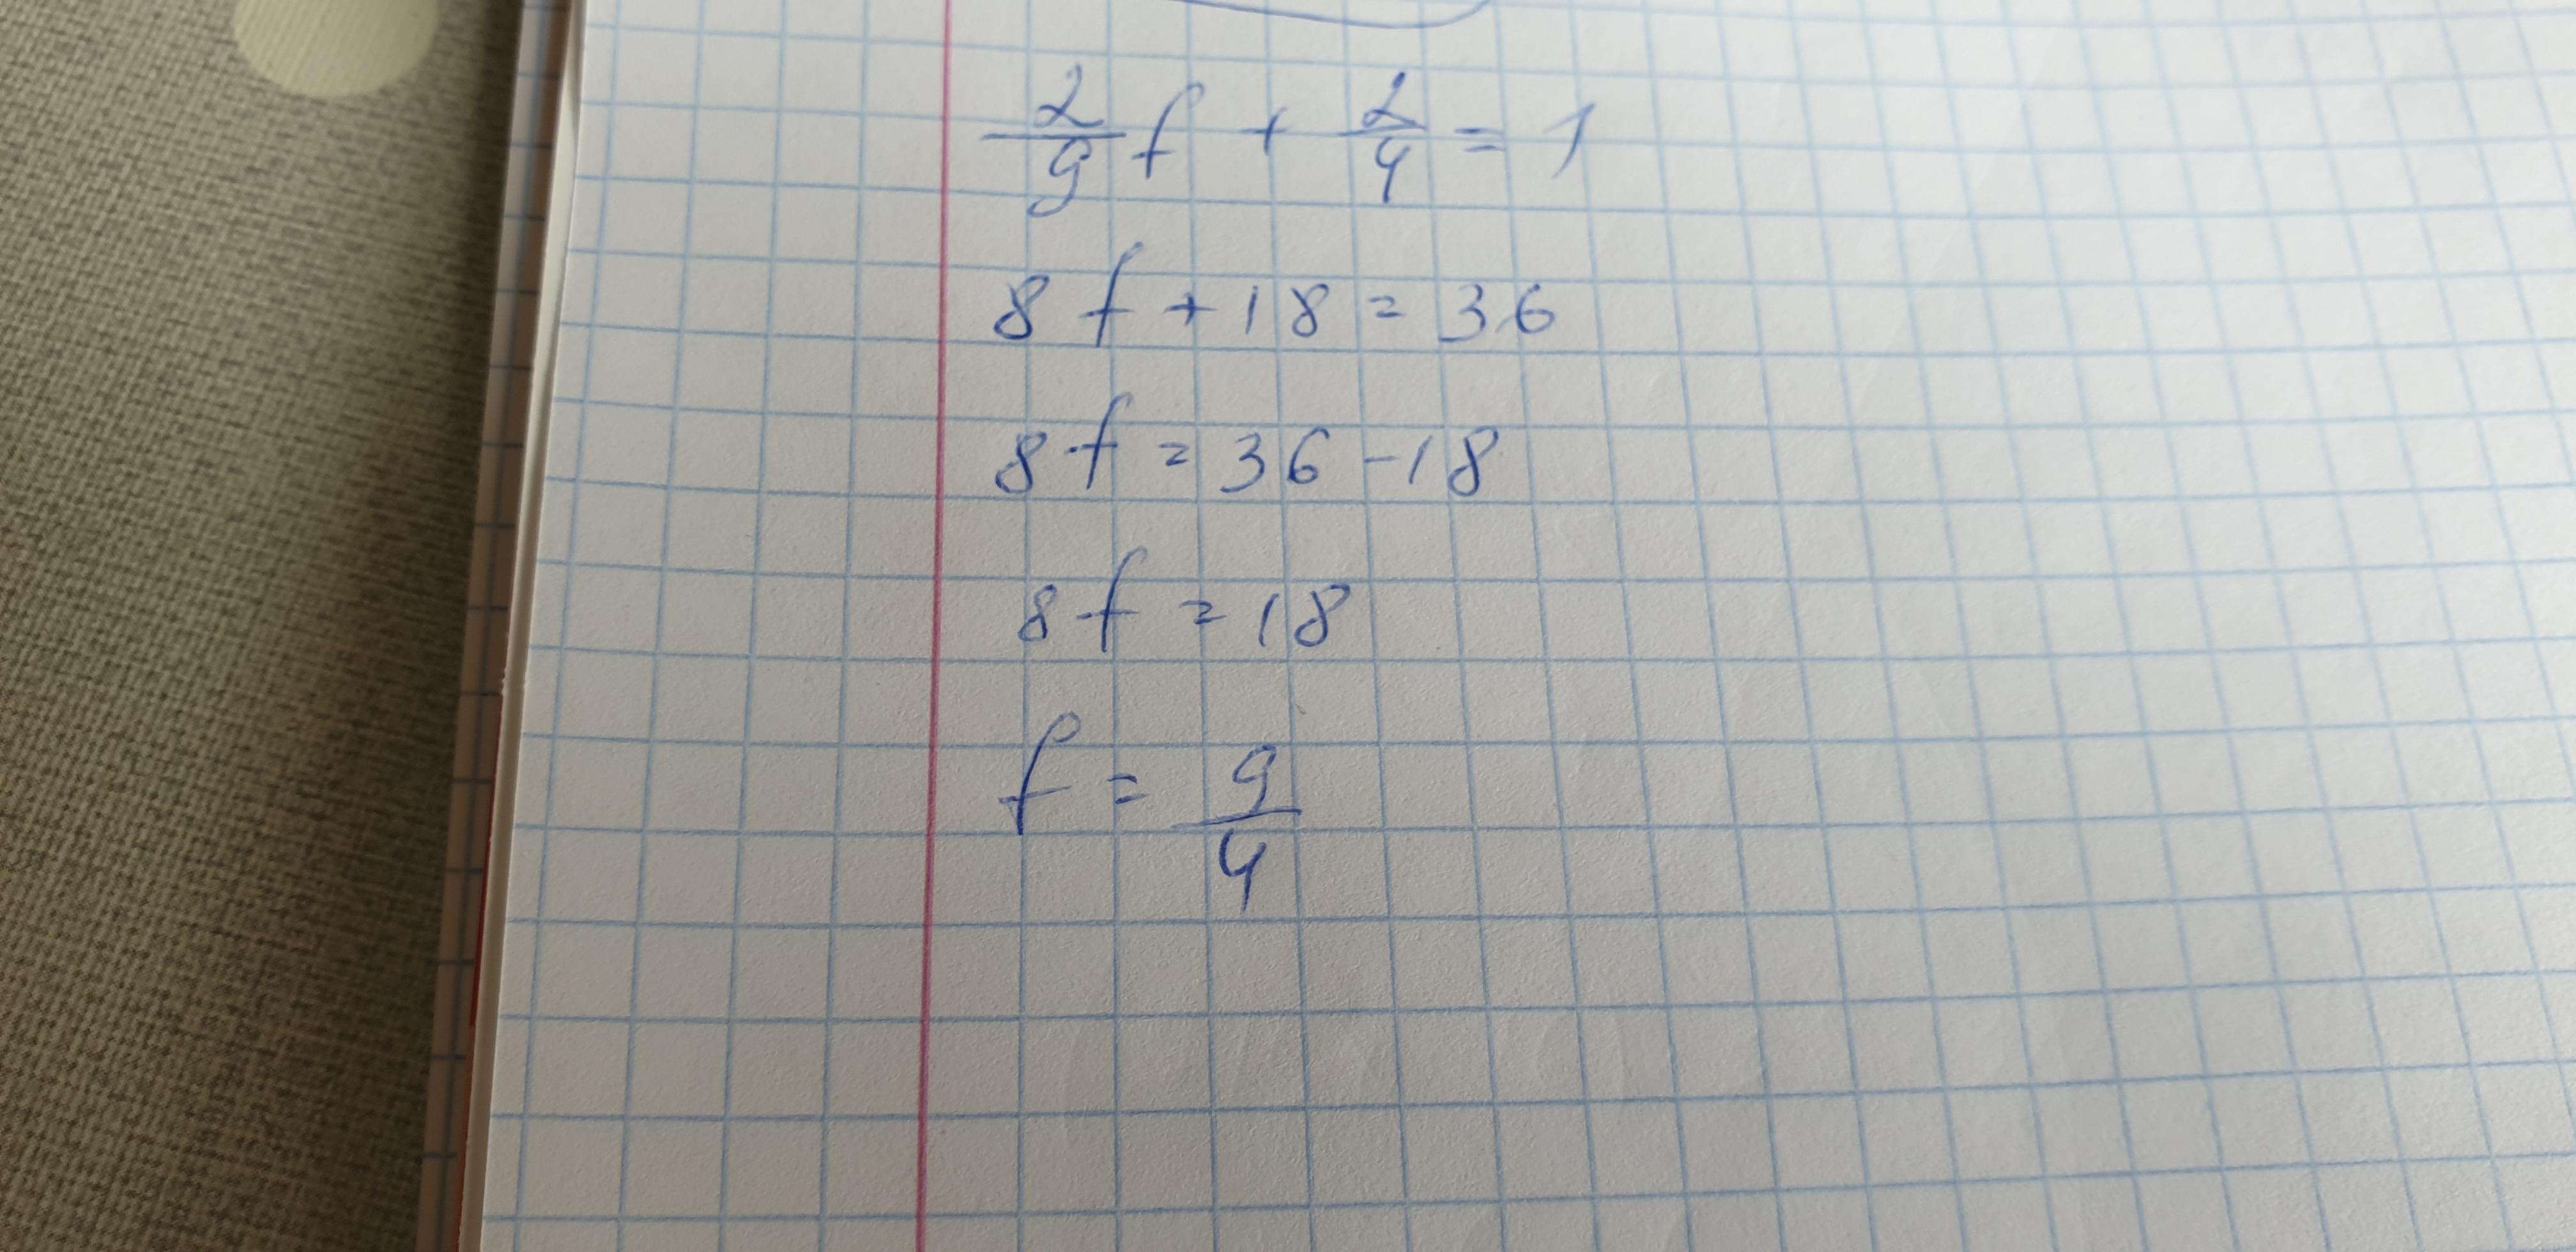 2/9 f + 2/4 = 1
8f + 18 = 36
8f = 36 - 18
8f = 18
f = 9/4